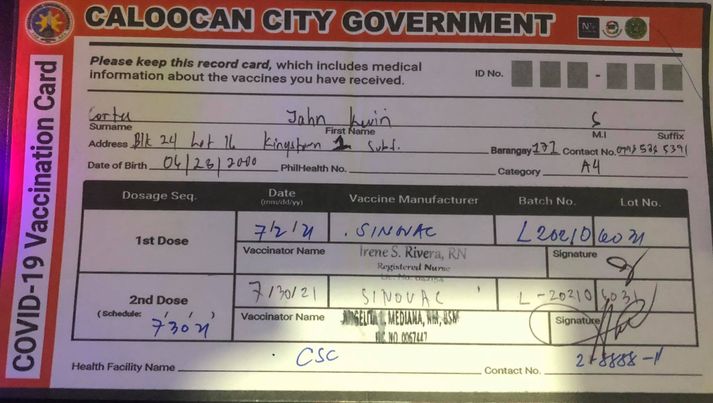 CALOOCAN CITY GOVERNMENT
COVID-19 Vaccination Card
Please keep this record card, which includes medical
information about the vaccines you have received.
ID No. -
Cortes Jahn Kevin S
Surname First Name M.I Suffix
Address Blk 24 Lot 16 Kingstown 1 Subd. Barangay 171 Contact No.
Date of Birth 04/28/2000 PhilHealth No. Category A4
Dosage Seq. Date (mm/dd/yy) Vaccine Manufacturer Batch No. Lot No.
1st Dose 7/2/21 SINOVAC L20210 6031
Vaccinator Name Irene S. Rivera, RN Signature
Registered Nurse
2nd Dose 7/30/21 SINOVAC L-20210 6031
(Schedule: / / ) 73021 Vaccinator Name MEDIANA, Signature
LIC. NO. 0067447
Health Facility Name CSC Contact No. 2-8888-11